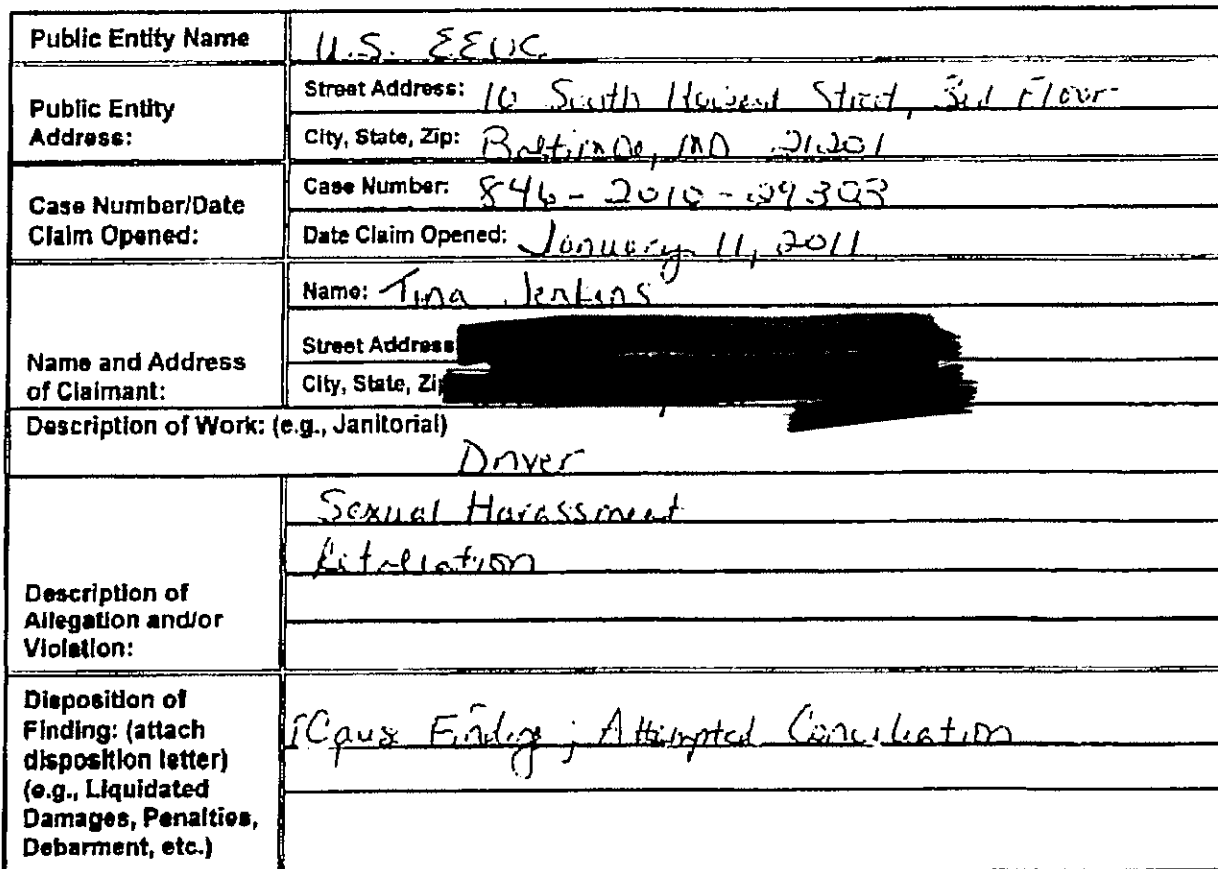 Public Entity Name U.S. EEOC
Public Entity Address:
Street Address: 10 South Howard Street, 3rd Floor
City, State, Zip: Baltimore, MD 21201
Case Number/Date Claim Opened:
Case Number: 846-2010-
Date Claim Opened: January 11, 2011
Name and Address of Claimant:
Name: Tina Jenkins
Street Address
City, State, Zip
Description of Work: (e.g., Janitorial)
Driver
Description of Allegation and/or Violation:
Sexual Harassment
Retaliation
Disposition of Finding: (attach disposition letter) (e.g., Liquidated Damages, Penalties, Debarment, etc.)
Cause Finding; Attempted Conciliation